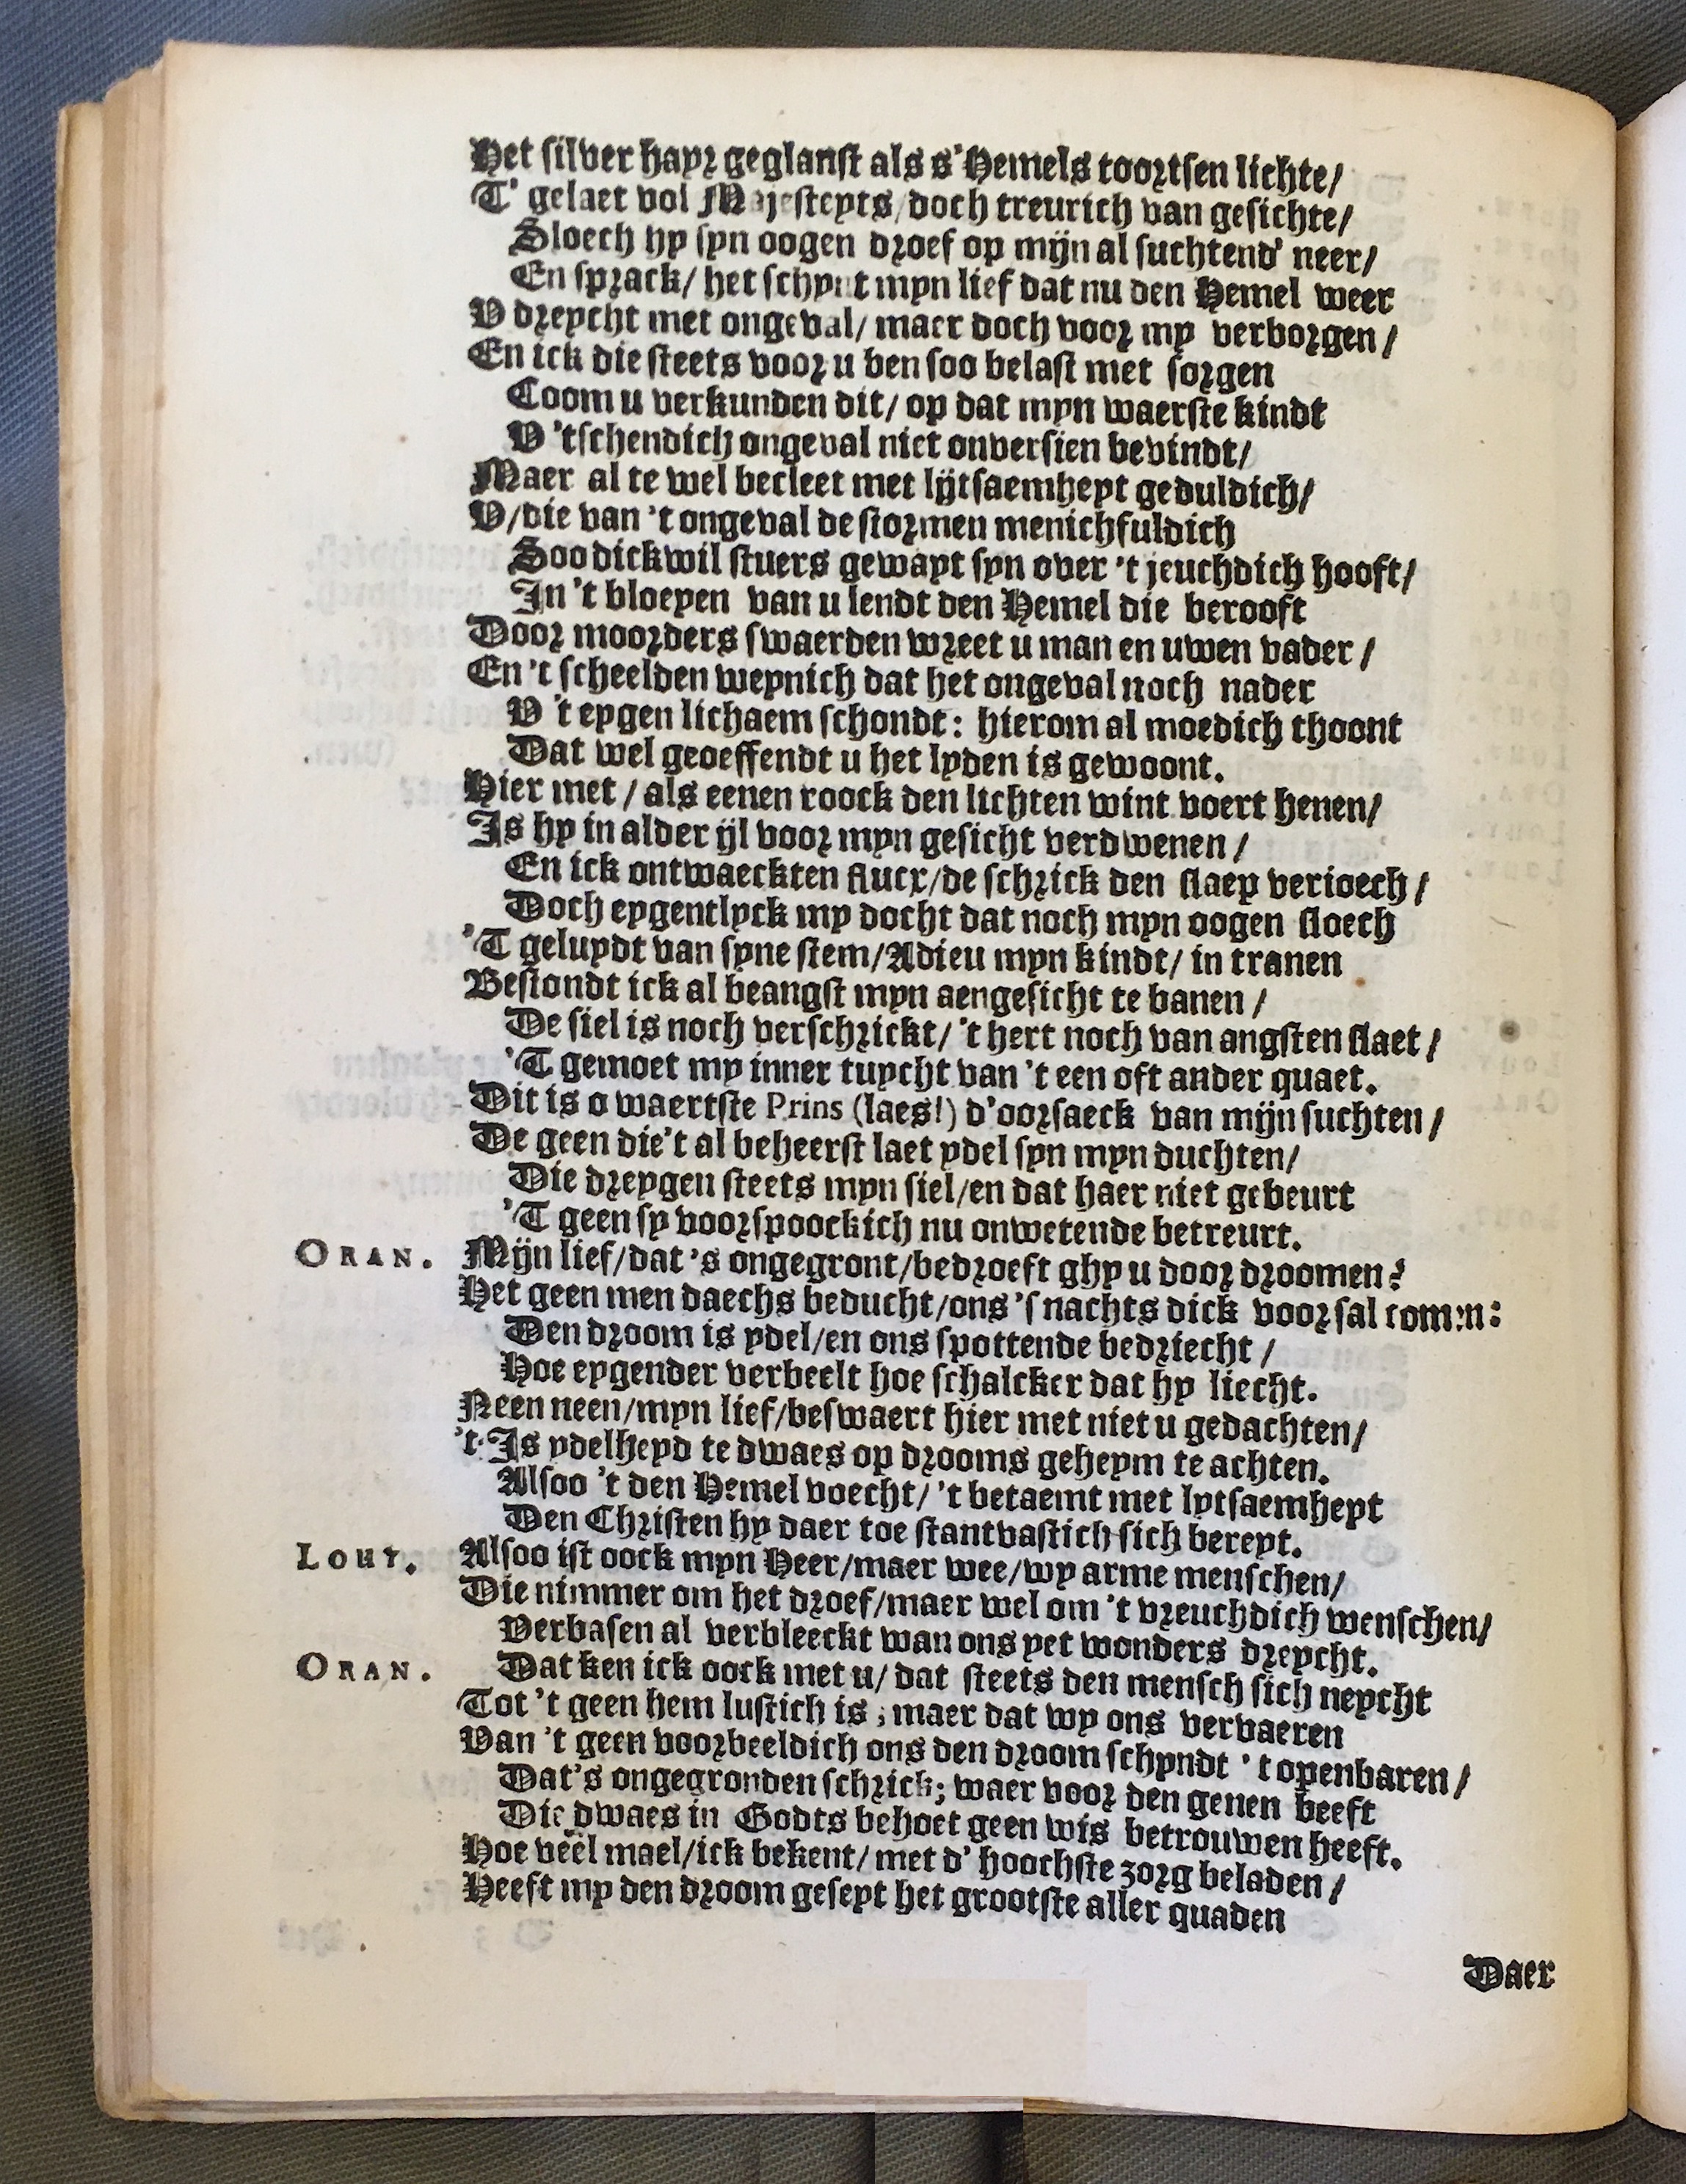 Het silver hayr geglanst als s'Hemels toortsen lichte/
T' gelaet vol Majesteyts/doch treurich van gesichte/
Sloech hy syn oogen droef op mijn al suchtend' neer/
En sprack/ het schynt myn lief dat nu den Hemel weer
V dreycht met ongeval/ maer doch voor my verborgen/
En ick die steets voor u ben soo belast met sorgen
Coom u verkunden dit/ op dat myn waerste kindt
V 'tschendich ongeval niet onversien bevindt/
Maer al te wel becleet met lijtsaemheyt geduldich/
V/die van 't ongeval de stormen menichfuldich
Soo dickwil stuers gewayt syn over 't jeuchdich hooft/
In 't bloeyen van u lendt den Hemel die berooft
Door moorders swaerden wreet u man en uwen vader/
En 't scheelden weynich dat het ongeval noch nader
V 't eygen lichaem schondt: hierom al moedich thoont
Dat wel geoeffendt u het lyden is gewoont.
Hier met/ als eenen roock den lichten wint voert henen/
Is hy in alder ijl voor myn gesicht verdwenen/
En ick ontwaeckten flucx/de schrick den slaep verjoech/
Doch eygentlyck my docht dat noch myn oogen sloech
'T geluydt van syne stem/Adieu myn kindt/ in tranen
Bestondt ick al beangst myn aengesicht te banen/
De siel is noch verschrickt/ 't hert noch van angsten slaet/
'T gemoet my inner tuycht van 't een oft ander quaet.
Dit is o waertste Prins (laes!) d'oorsaeck van mijn suchten/
De geen die't al beheerst laet ydel syn myn duchten/
Die dreygen steets myn siel/en dat haer niet gebeurt
'T geen sy voorspoockich nu onwetende betreurt.
ORAN. Mijn lief/dat 's ongegront/bedroeft ghy u door droomen?
Het geen men daechs beducht/ons 's nachts dick voor sal comen:
Den droom is ydel/en ons spottende bedriecht/
Hoe eygender verbeelt hoe schalcker dat hy liecht.
Neen neen/myn lief/beswaert hier met niet u gedachten/
't Is ydelheyd te dwaes op drooms geheym te achten.
Alsoo 't den Hemel voecht/ 't betaemt met lytsaemheyt
Den Christen hy daer toe stantvastich sich bereyt.
LOUY. Alsoo ist oock myn Heer/maer wee/wy arme menschen/
Die nimmer om het droef/maer wel om 't vreuchdich wenschen/
Verbasen al verbleeckt wan ons yet wonders dreycht.
ORAN. Dat ken ick oock met u/ dat steets den mensch sich neycht
Tot 't geen hem lustich is; maer dat wy ons vervaeren
Van 't geen voorbeeldich ons den droom schyndt 't openbaren/
Dat's ongegronden schrick; waer voor den genen beeft
Die dwaes in Godts behoet geen wis betrouwen heeft.
Hoe veel mael/ick bekent/ met d' hoochste zorg beladen/
Heeft my den droom geseyt het grootste aller quaden
Daer